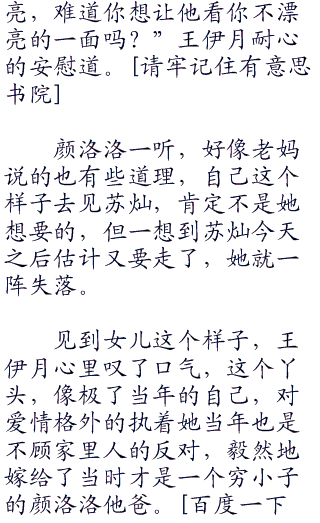 亮，难道你想让他看你不漂
亮的一面吗？”王伊月耐心
的安慰道。[请牢记住有意思
书院]
颜洛洛一听，好像老妈
说的也有些道理，自己这个
样子去见苏灿，肯定不是她
想要的，但一想到苏灿今天
之后估计又要走了，她就一
阵失落。
见到女儿这个样子，王
伊月心里叹了口气，这个丫
头，像极了当年的自己，对
爱情格外的执着她当年也是
不顾家里人的反对，毅然地
嫁给了当时才是一个穷小子
的颜洛洛他爸。[百度一下